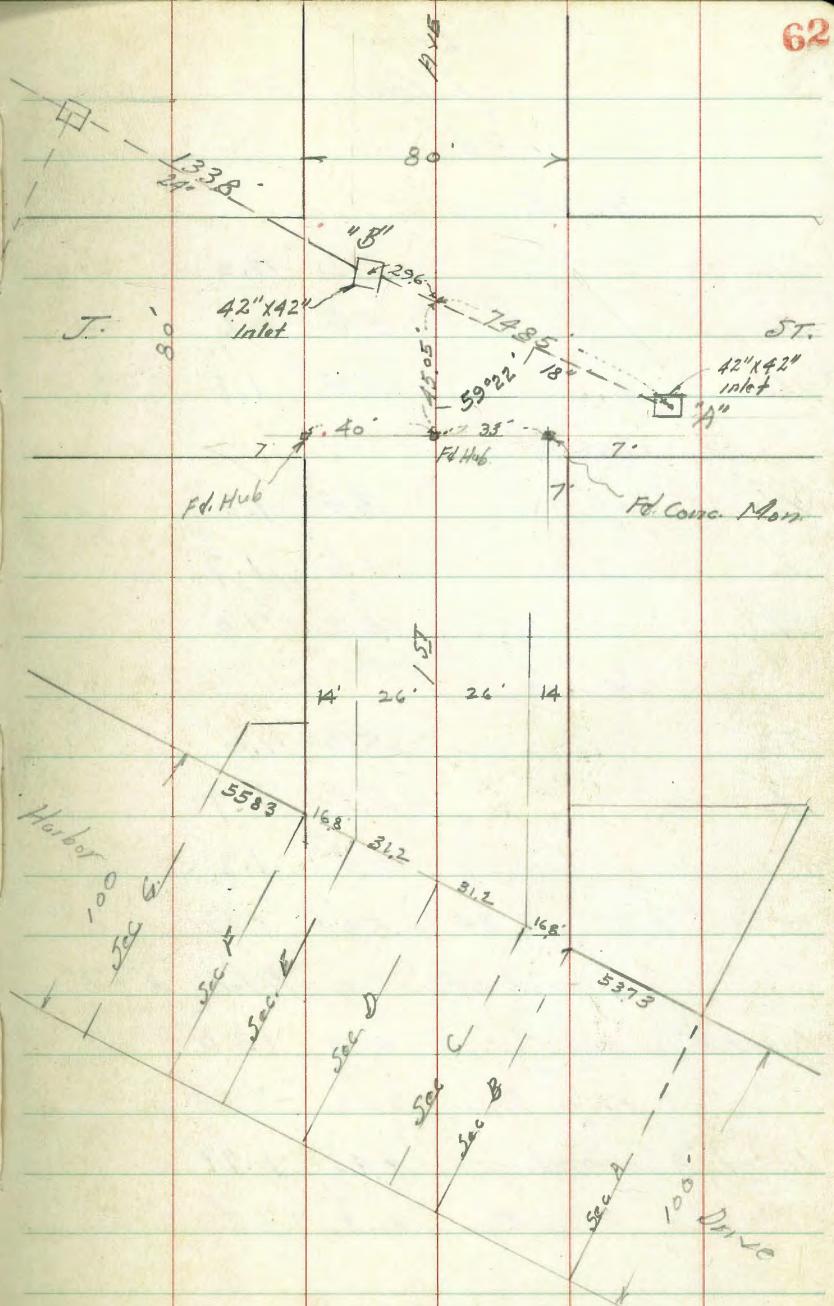 62
AVE
80'
133.8'
24"
"B"
29.6
42"X42"
Inlet
J.
80'
74.85'
18"
ST.
42"X42"
inlet
"A"
45.05'
59°22'
7
40'
33'
7'
Fd. Hub
Fd. Hub
7'
Fd. Conc. Mon.
1 ST
14'
26'
26'
14
55.83
16.8'
31.2
31.2
16.8'
53.73
Harbor
100
Sec. G
Sec. F
Sec. E
Sec. D
Sec C
Sec B
Sec A
100'
Drive